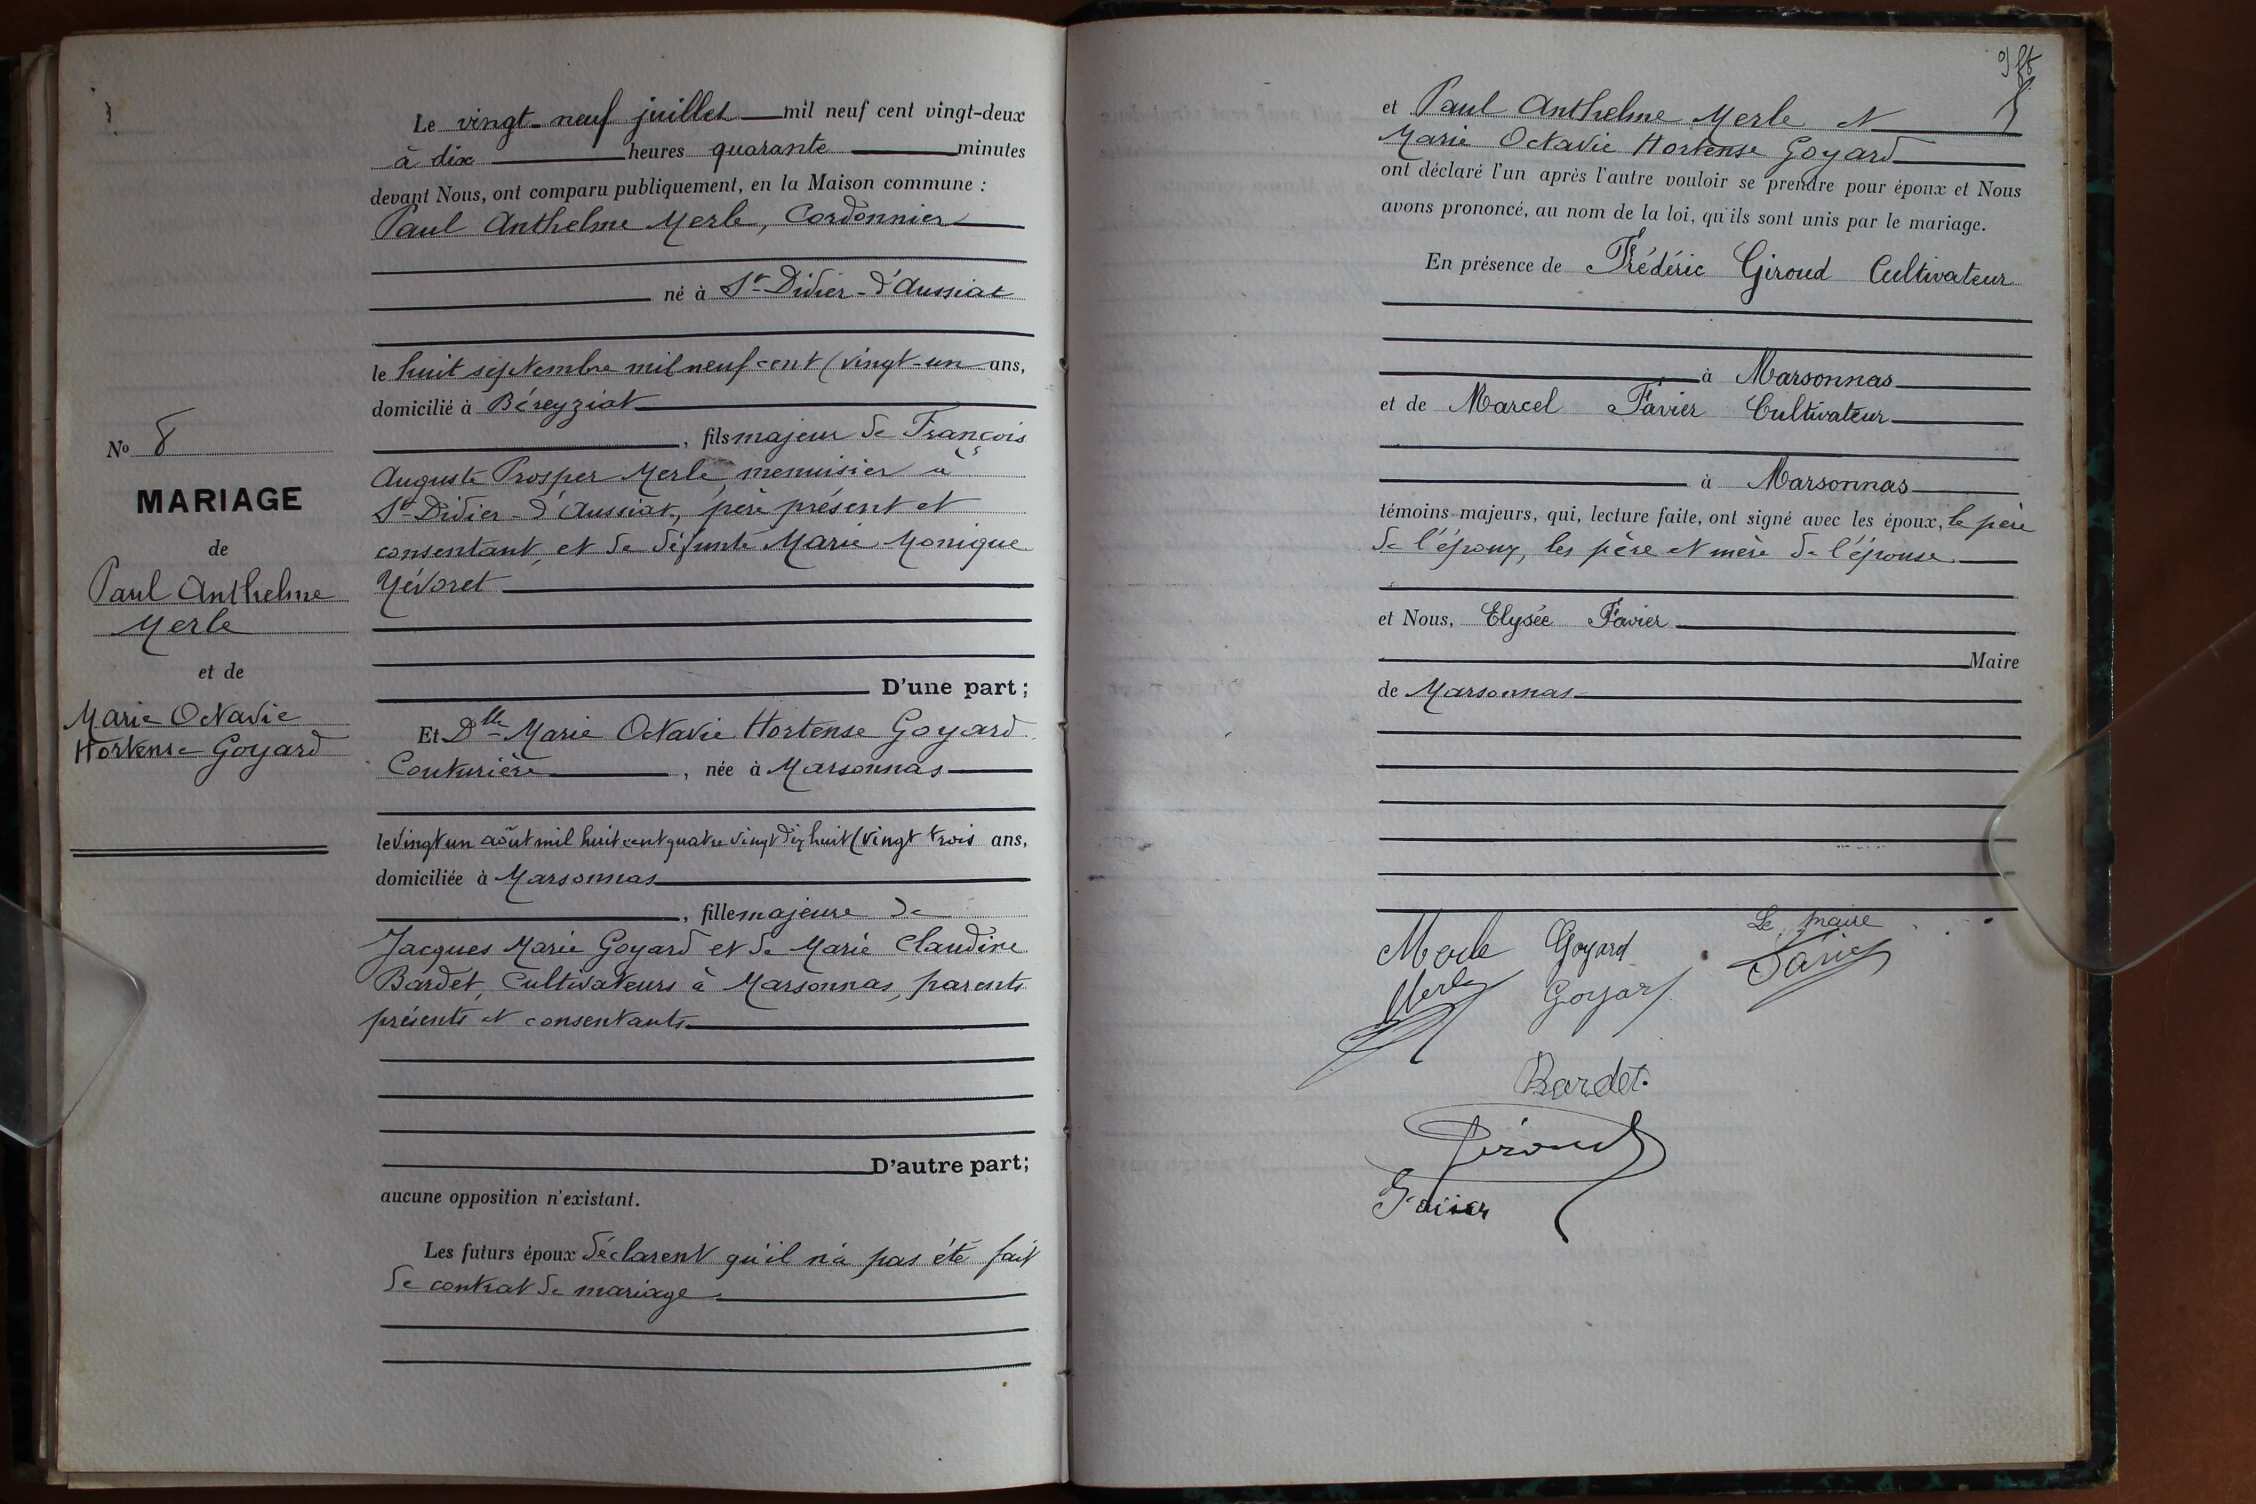 Le vingt-neuf juillet mil neuf cent vingt-deux
à dix heures quarante minutes
devant Nous, ont comparu publiquement, en la Maison commune :
Paul Anthelme Merle, Cordonnier
né à St-Didier-d'Aussiat
le huit septembre mil neuf cent (vingt-un ans,
domicilié à Béreyziat
, fils majeur de François
Auguste Prosper Merle, menuisier à
St-Didier-d'Aussiat, père présent et
consentant, et de défunte Marie Monique
Névoret
D'une part ;
Et Dlle Marie Octavie Hortense Goyard
Couturière, née à Marsonnas
le vingt un août mil huit cent quatre vingt dix huit (vingt trois ans,
domiciliée à Marsonnas
, fille majeure de
Jacques Marie Goyard et de Marie Claudine
Bardet, Cultivateurs à Marsonnas, parents
présents et consentants
D'autre part;
aucune opposition n'existant.
Les futurs époux déclarent qu'il n'a pas été fait
de contrat de mariage.
No 8
MARIAGE
de
Paul Anthelme
Merle
et de
Marie Octavie
Hortense Goyard
et Paul Anthelme Merle et
Marie Octavie Hortense Goyard
ont déclaré l'un après l'autre vouloir se prendre pour époux et Nous
avons prononcé, au nom de la loi, qu'ils sont unis par le mariage.
En présence de Frédéric Giroud Cultivateur
à Marsonnas
et de Marcel Favier Cultivateur
à Marsonnas
témoins majeurs, qui, lecture faite, ont signé avec les époux, le père
de l'époux, les père et mère de l'épouse.
et Nous, Elysée Favier
Maire
de Marsonnas
Le maire
Merle Goyard Favier
Merle Goyard
Bardet.
Giroud
Favier